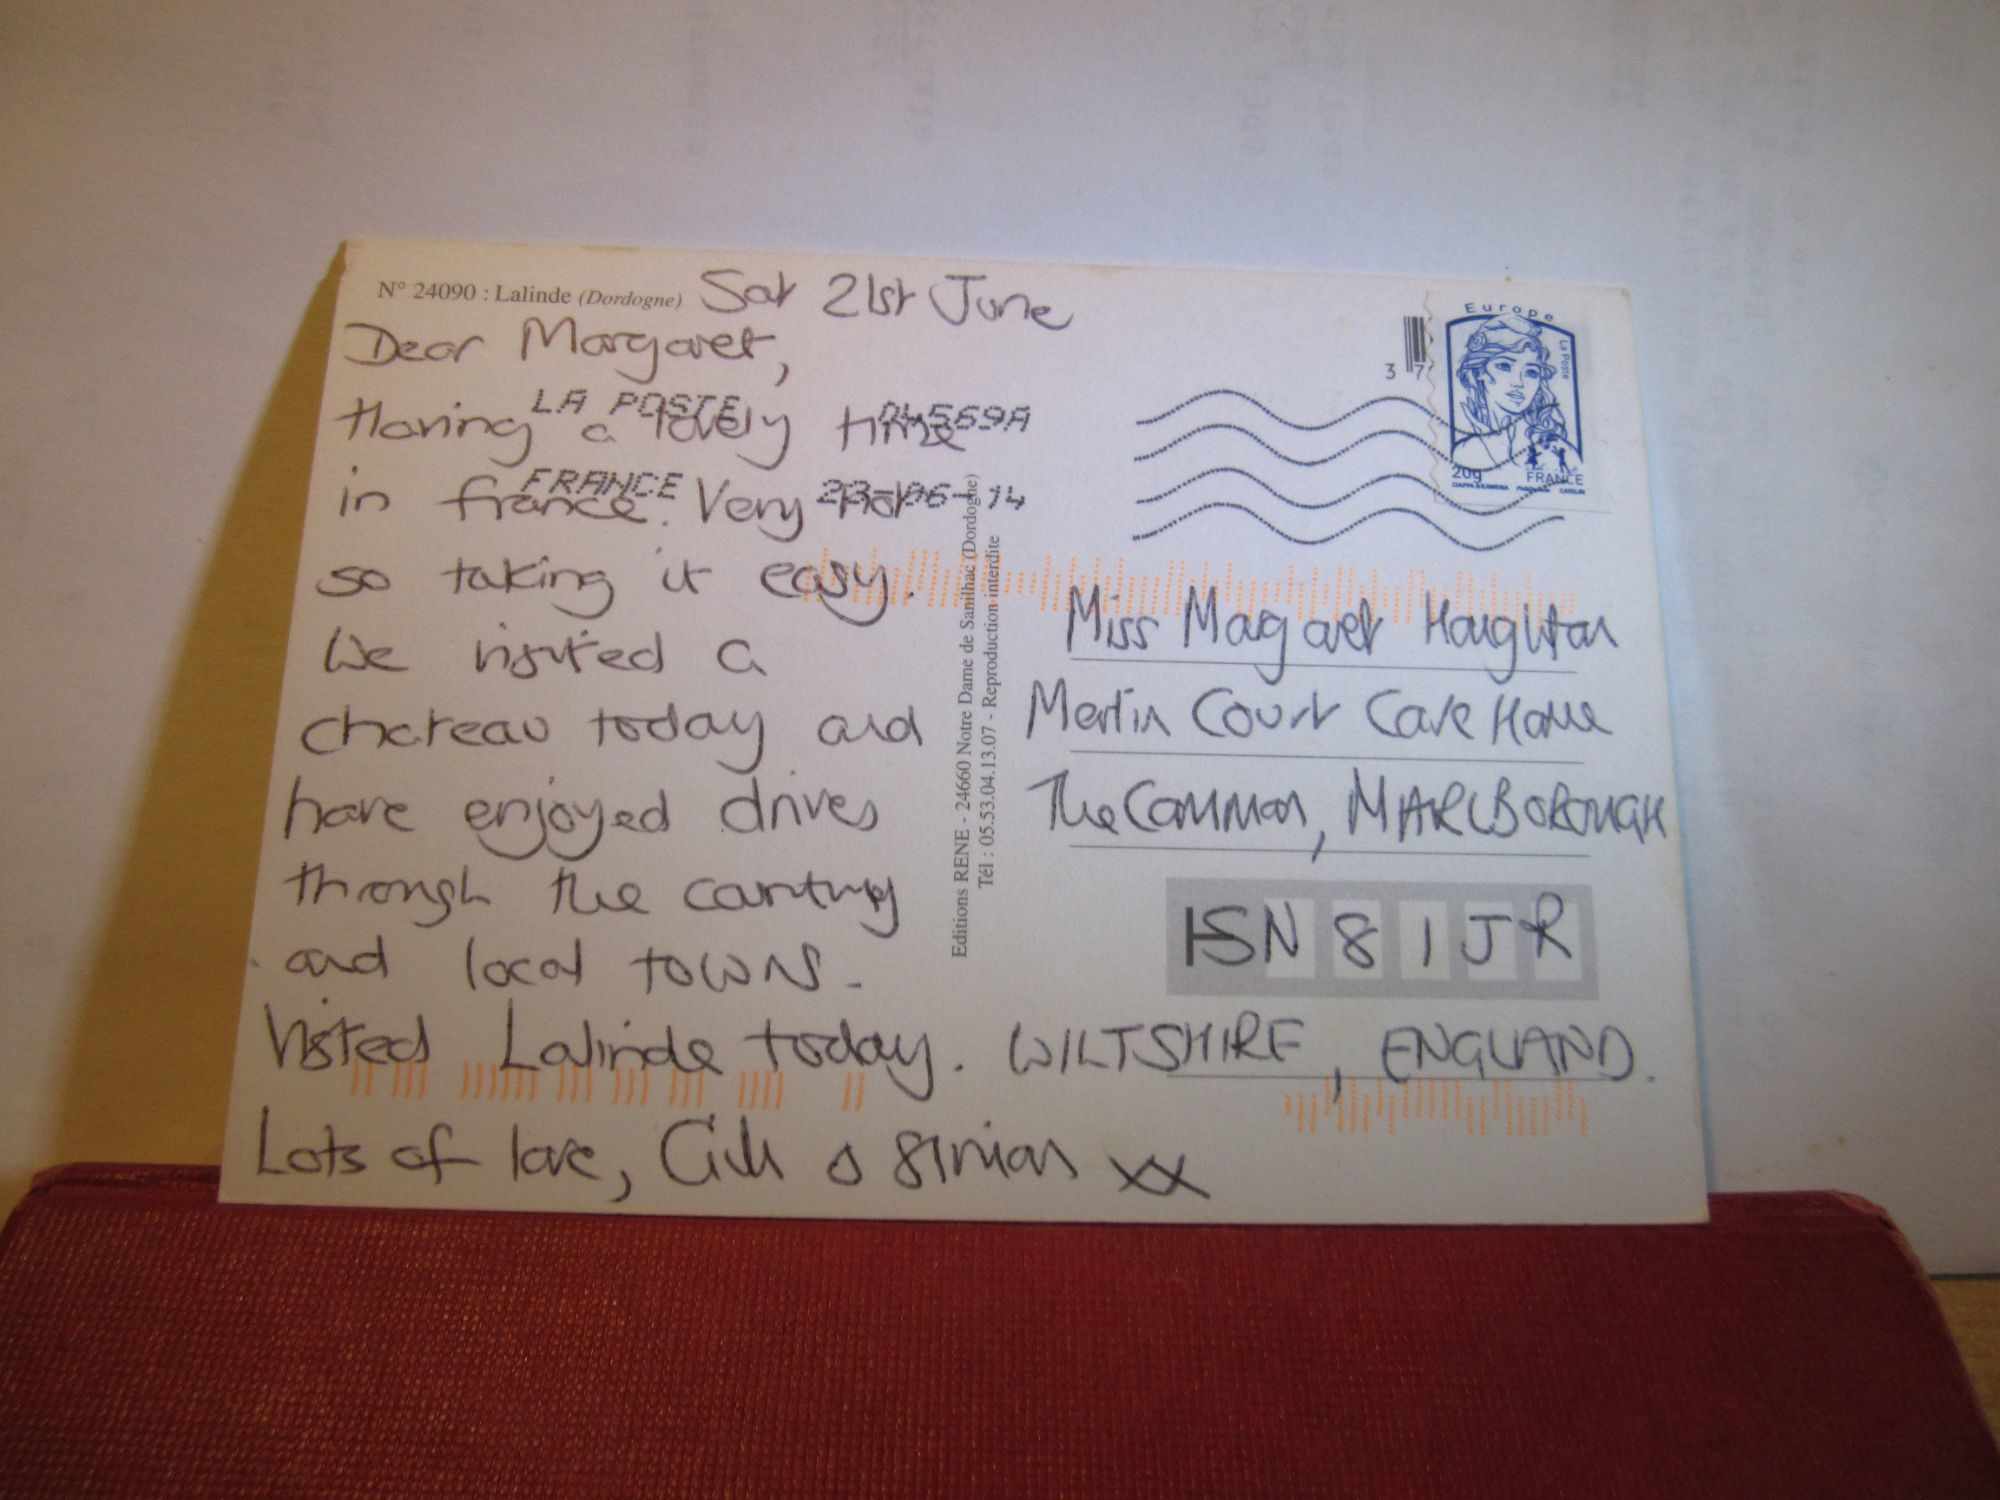 N° 24090 : Lalinde (Dordogne)
Sat 21st June
Dear Margaret,
Having a lovely time
in france. Very hot
so taking it easy.
We visited a
chateau today and
have enjoyed drives
through the country
and local towns.
Visited Lalinde today.
Lots of love, Gill &
xx
LA POSTE 04569A
FRANCE 23-06-14
Editions RENE - 24660 Notre Dame de Sanilhac (Dordogne)
Tél : 05.53.04.13.07 - Reproduction interdite
37
Europe
La Poste
20g
FRANCE
CIAPPA & KAWENA
Miss Margaret Houghton
Merlin Court Care Home
The Common, MARLBOROUGH
SN 8 1 J R
WILTSHIRE, ENGLAND.